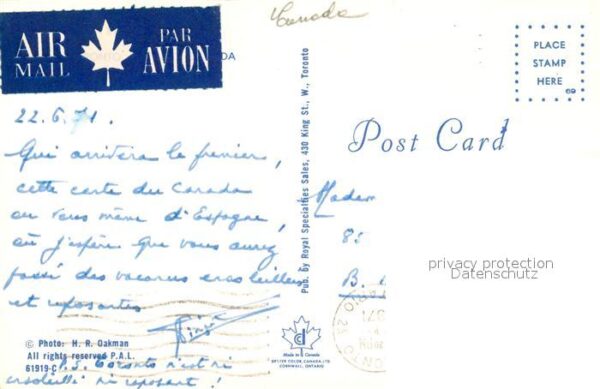 Canada
AIR MAIL
PAR AVION
DA
PLACE
STAMP
HERE
69
22.6.71.
Qui arrivera le premier,
cette carte du Canada
ou vous même d'Espagne,
où j'espère que vous aurez
passé des vacances ensoleillées
et reposantes
P.S. Toronto n'est ni
ensoleillé ni reposant !
© Photo: H. R. Oakman
All rights reserved P.A.L.
61919-C
Pub. by Royal Specialties Sales, 430 King St., W., Toronto
Made in Canada
BETTER COLOR, CANADA LTD
CORNWALL, ONTARIO
Post Card
Madem
85
B.
privacy protection
Datenschutz